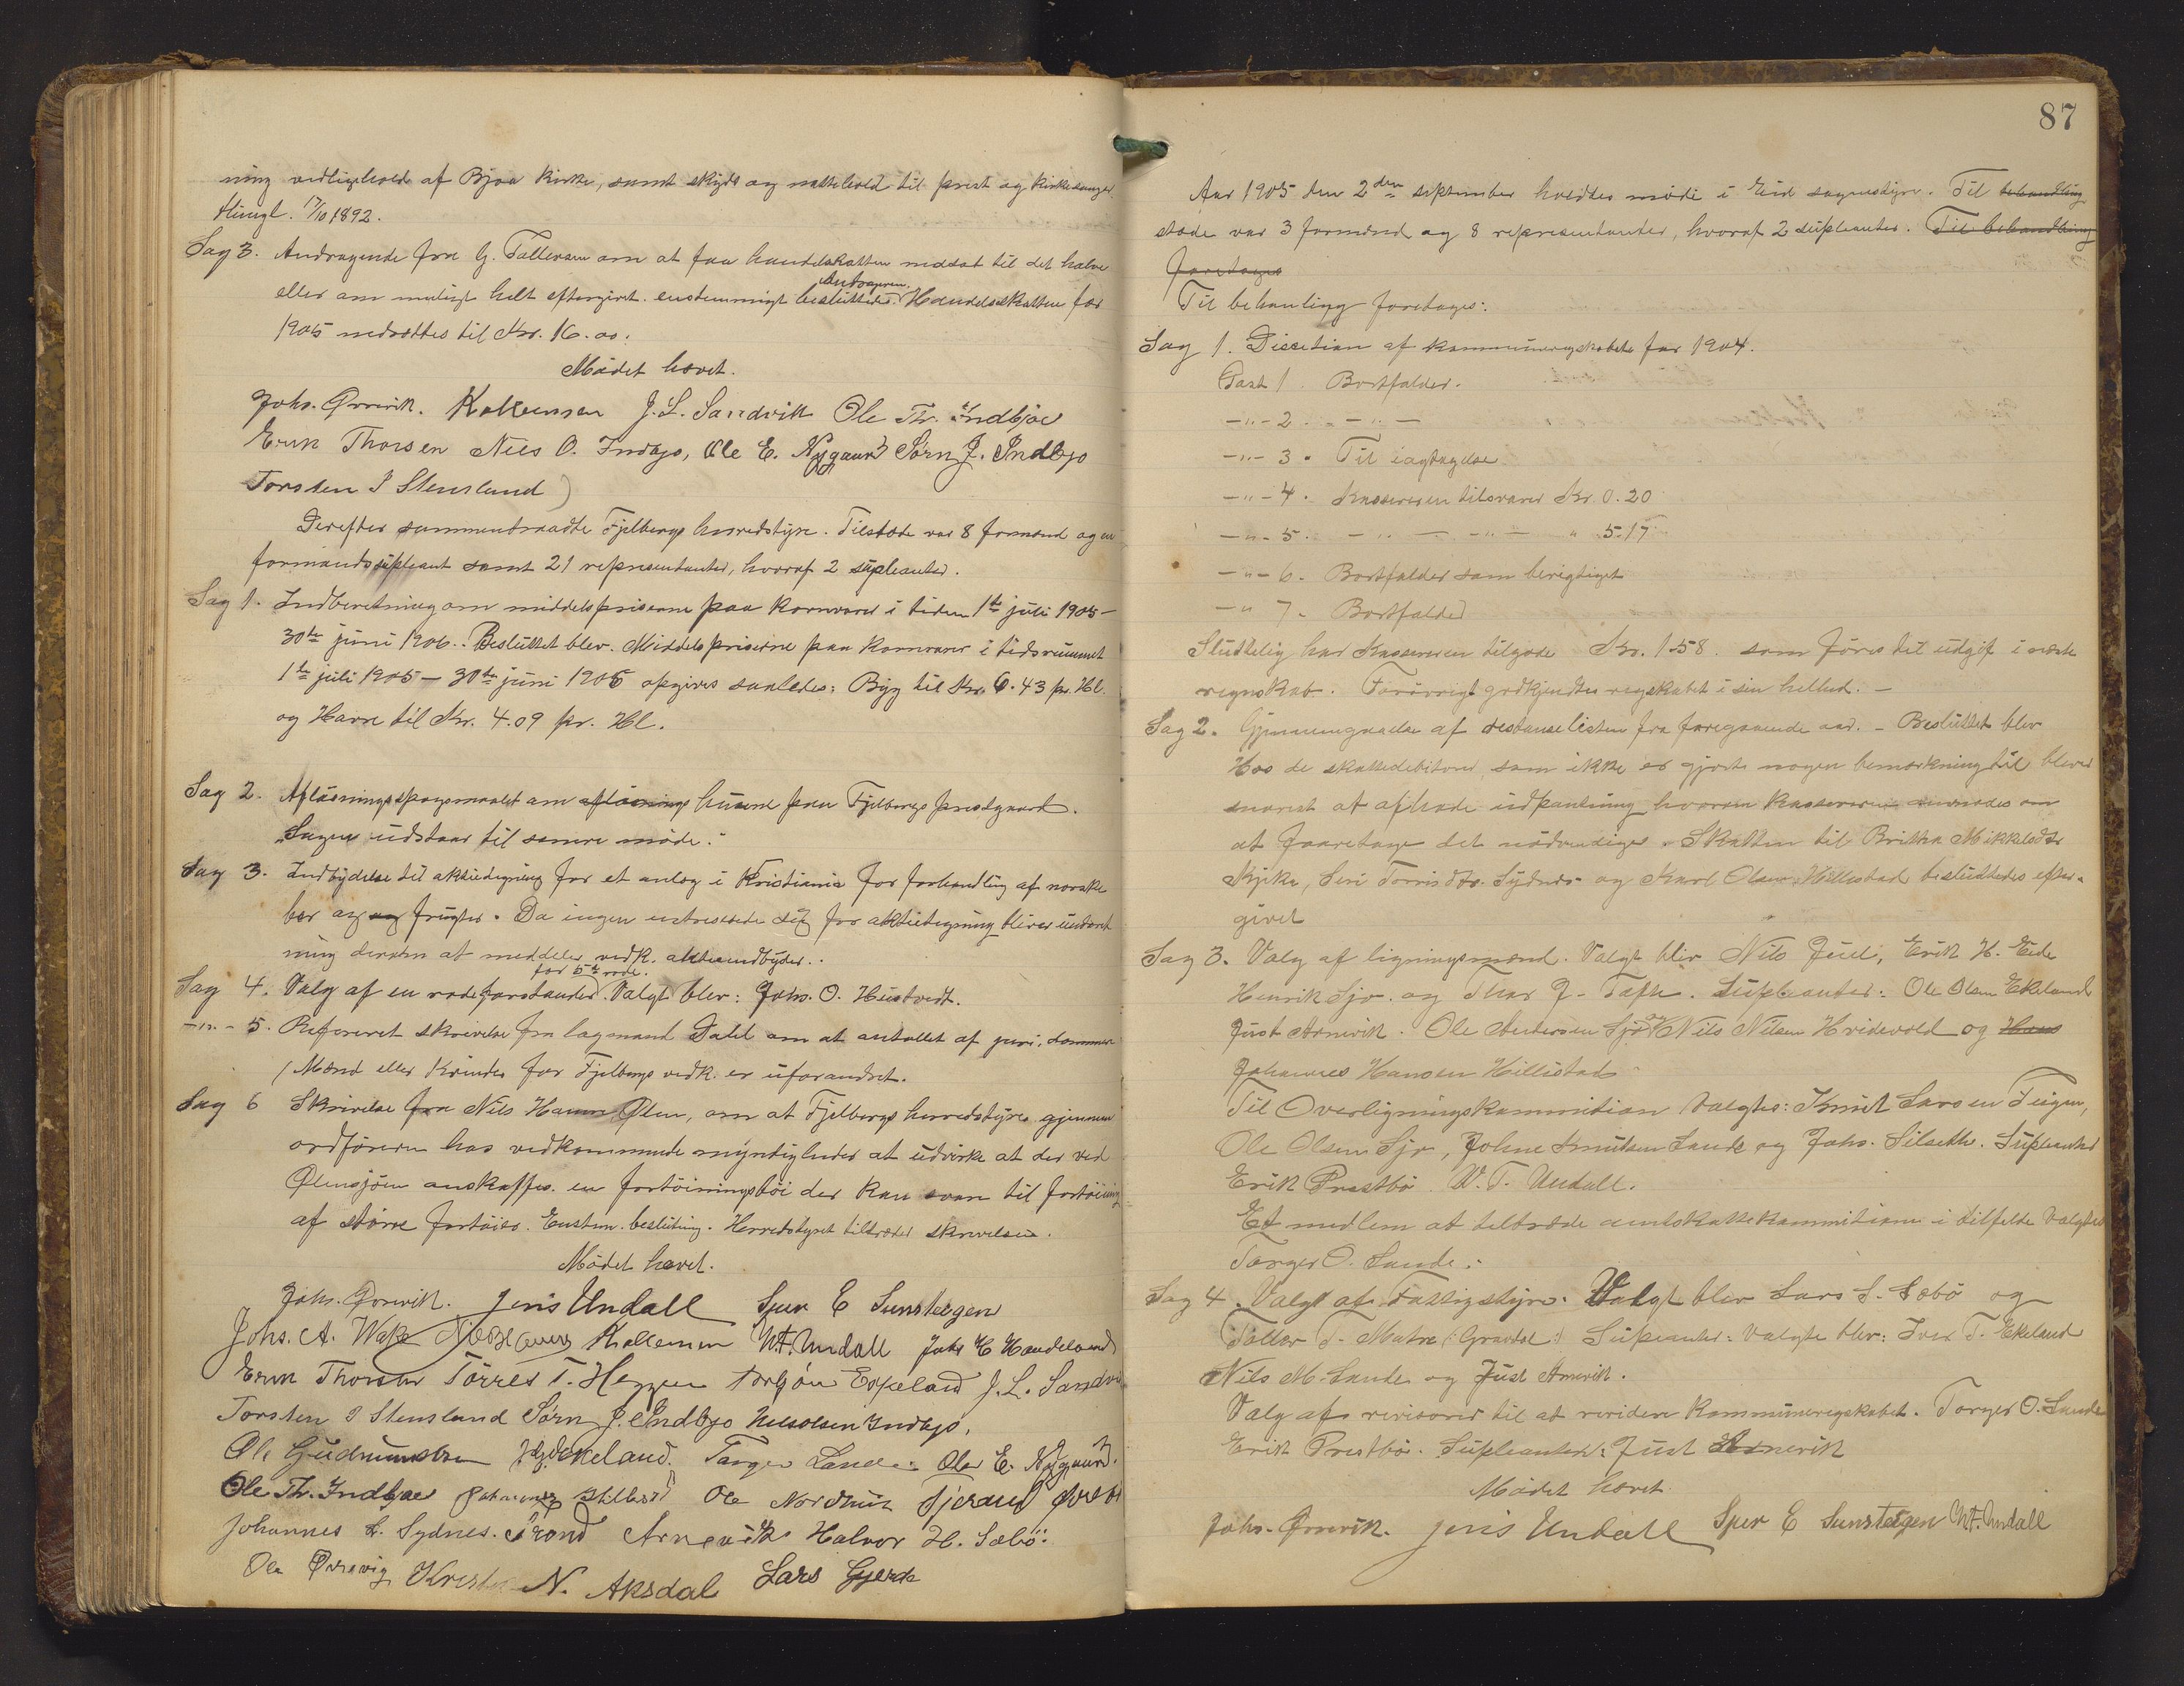 ning vedligehold af Bjoa kirke, samt skyds og nattehold til prest og kirkesanger
17/10 1892.
Sag 3. Andragende fra G. Tollevsen om at faa handelskatten nedsat til det halve
eller om muligt helt eftergivet. enstemmigt besluttedes: Handelsskatten for
1905 nedsættes til Kr. 16.00.
Mødet hævet.
Johs. Ørrevik. J. L. Sandvik Ole Th. Indbjoe
Erik Thorsen Niels O. Indbjo, Ole E. Nygaard Sørn J. Indbjo
Torsten J Stensland
Derefter sammentraadte Fjelbergs herredstyre. Tilstæde var 8 formænd og en
formandssupleant samt 21 representanter, hvoraf 2 supleanter.
Sag 1. Indberetning om middelspriserne paa kornvarer i tiden 1te juli 1905 –
30te juni 1906.. Besluttet blev. Middelspriserne paa kornvarer i tidsrummet
1te juli 1905 – 30te juni 1906 opgives saaledes: Byg til Kr. 6.43 pr. Hl.
og Havre til Kr. 4.09 pr. Hl.
Sag 2. Afløsningsspørgsmaalet om afløsnings husene paa Fjelbergs prestgaard.
Sagen udstaar til senere møde.
Sag 3. Indbydelse til aktietegning for et anlæg i Kristiania for forhandling af norske
bær og og frugter. Da ingen interesserede sig for aktietegning bliver underret
ning derom at meddeles vedk. aktieindbyder..
for 5te rode.
Sag 4. Valg af en rodeforstander. Valgt blev: Johs. O. Hustvedt.
-"- 5. Refereret skrivelse fra lagmand Dahl om at antallet af juri, dommer
(Mænd eller Kvinder for Fjelbergs vedk. er uforandret.
Sag 6 Skrivelse fra Nils Hamre Ølen, om at Fjelbergs herredstyre gjennem
ordføreren hos vedkommende myndigheder at udvirke at der ved
Ølensjøen anskaffes en fortøiningsbøi der kan svare til fortøining
af større fartøier. Enstem. beslutning. Herredstyret tiltræder skrivelsen.
Mødet hævet.
Johs. Ørrevik. Jens Undall Sjur E Sunsteigen
Johs. A. Wake W.T. Undall Johs E Handeland
Erik Thorsen Tørres T. Heggen Torbjøn Espeland J. L. Sandvik
Torsten J Stensland Sørn J. Indbjo Nilsolsen Indbjo,
Ole Gudmundsen Ekeland. Torger Lande. Ole E. Nygaard.
Ole Th. Indbjoe Johannes Ole
Johannes L. Sydnes. Trond Arnevik Halvor H. Sæbø.
Ole Ørrevig N. Aksdal Lars Gjerde
87
Aar 1905 den 2den september holdtes møde i Eid sognestyre. Til behandling
stæde var 3 formænd og 8 representanter, hvoraf 2 supleanter. Til behandling
foretages
Til behanling foretages:
Sag 1. Dicection af kommuneregnskabet for 1904.
Post 1. Bortfalder.
-"- 2. - " -
-"- 3. Til iagtagelse
-"- 4. Kassereren tilsvarer Kr. 0.20
-"- 5. - " - - " - " 5.17
-"- 6. Bortfalder som berigtiget
-" 7. Bortfalder
Sluttelig har Kassereren tilgode Kr. 1.58. som føres til udgif i næste
regnskab. Forøvrigt godkjendtes regskabet i sin helhed. –
Sag 2. Gjennemgaaelse af restanselisten fra foregaaende aar. – Besluttet blev
Hos de skattedebitorer, som ikke er gjort nogen bemærkning til bliver
snarest at afholde udpantning hvorom kassereren anmodes om
at foaretage det nødvendige. Skatten til Britha Mikkelsdtr
Skjeke, Siri Torrisdtr. Sydnes og Karl Olsen Hillestad besluttedes efter-
givet
Sag 3. Valg af ligningsmænd. Valgt blev Nils Juul, Erik H. Eide
Henrik Sjo. og Thor J. Tafte. Supleanter: Ole Olsen Ekeland
Just Arnevik. Ole Andersen Sjo Nils Nilsen Hvidevold og Hans
Johannes Hansen Hillestad
Til Overligningskommition Valgtes: Knut Larsen Teigen,
Ole Olsen Sjo, Johne Knutsen Lande og Johs. Silseth. Supleanter
Erik Prestbø W. T. Undall.
Et medlem at tiltræde amtskattekommitionen i tilfelde Valgtes
Torger O. Lande.
Sag 4. Valgt af Fattigstyre: Valgt blev Lars L. Sæbø og
Tollev T. Matre (Gravdal) Supleanter: Valgte blev: Iver T. Ekeland
Nils M. Lande og Just Arnevik.
Valg af revisorer til at revidere kommuneregskabet. Torger O. Lande
Erik Prestbø. Supleanter: Just Arnevik
Mødet hævet
Johs. Ørrevik. Jens Undall Sjur E Sunsteigen W.T. Undall